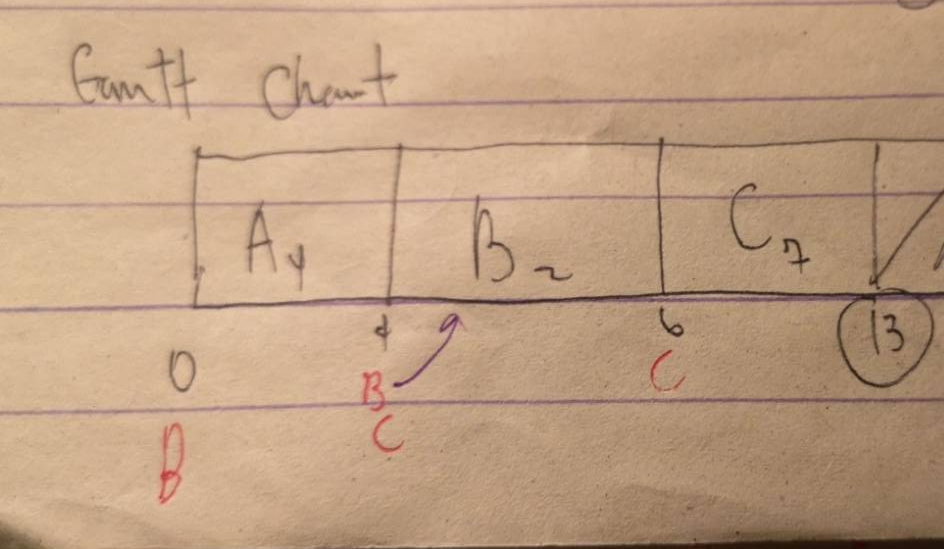 Gantt Chart
A4 B2 C7
0 4 6 13
B B C
C